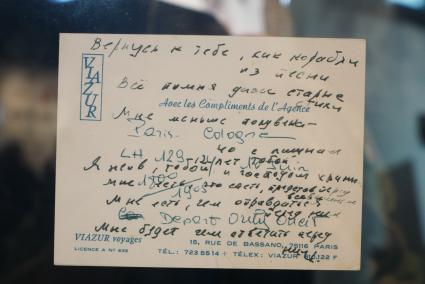 Вернусь к тебе, как корабли
из песни
VIAZUR
Всё помня даже старые
стихи
Avec les Compliments de l'Agence
Мне меньше полувека -
Paris - Cologne
40 с лишним
LH 129 - 12 лет тобой
Я жив, тобой и господом храним
Мне есть что спеть, представ перед
всевышним
Мне есть, чем оправдаться
перед ним
Depart Orly Ouest
Мне будет чем ответить перед
ним
VIAZUR voyages
LICENCE A N° 635
15, RUE DE BASSANO, 75116 PARIS
TÉL.: 723 5514 + TÉLEX: VIAZUR 610.122 F